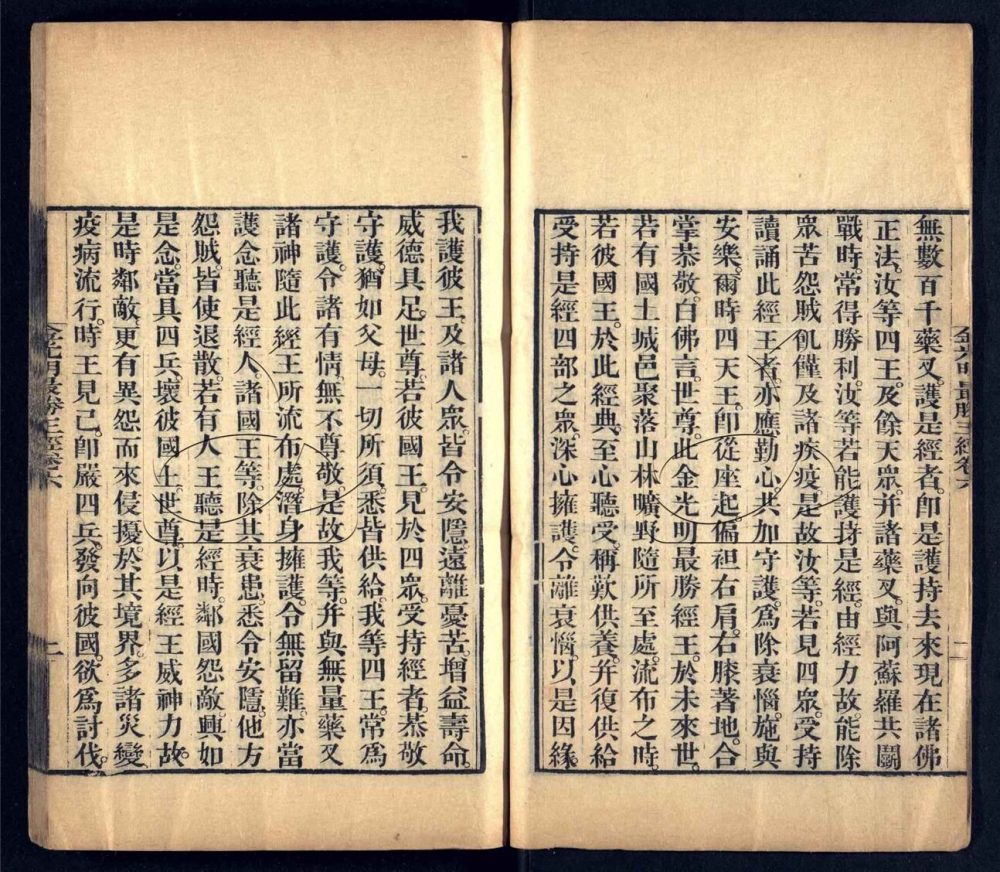 無數百千藥叉。護是經者。卽是護持去來現在諸佛
正法。汝等四王。及餘天眾。并諸藥叉。與阿蘇羅共鬬
戰時。常得勝利。汝等若能護持是經。由經力故。能除
眾苦怨賊飢饉及諸疾疫。是故汝等。若見四眾。受持
讀誦此經王者。亦應勤心共加守護。爲除衰惱。施與
安樂。爾時四天王。卽從座起。偏袒右肩。右膝著地。合
掌恭敬。白佛言。世尊。此金光明最勝經王。於未來世。
若有國土城邑聚落山林曠野。隨所至處流布之時。
若彼國王。於此經典。至心聽受。稱歎供養。并復供給
受持是經四部之眾。深心擁護。令離衰惱。以是因緣。
金光明最勝王經卷六
一
我護彼王。及諸人眾。皆令安隱。遠離憂苦。增益壽命。
威德具足。世尊。若彼國王。見於四眾。受持經者。恭敬
守護。猶如父母。一切所須。悉皆供給。我等四王。常爲
守護。令諸有情。無不尊敬。是故我等。并與無量藥叉
諸神。隨此經王所流布處。潛身擁護。令無留難。亦當
護念聽是經人。諸國王等。除其衰患。悉令安隱。他方
怨賊。皆使退散。若有人王聽是經時。鄰國怨敵。興如
是念。當具四兵。壞彼國土。世尊。以是經王威神力故。
是時鄰敵。更有異怨。而來侵擾。於其境界。多諸災變。
疫病流行。時王見已。卽嚴四兵。發向彼國。欲爲討伐。
金光明最勝王經卷六
二